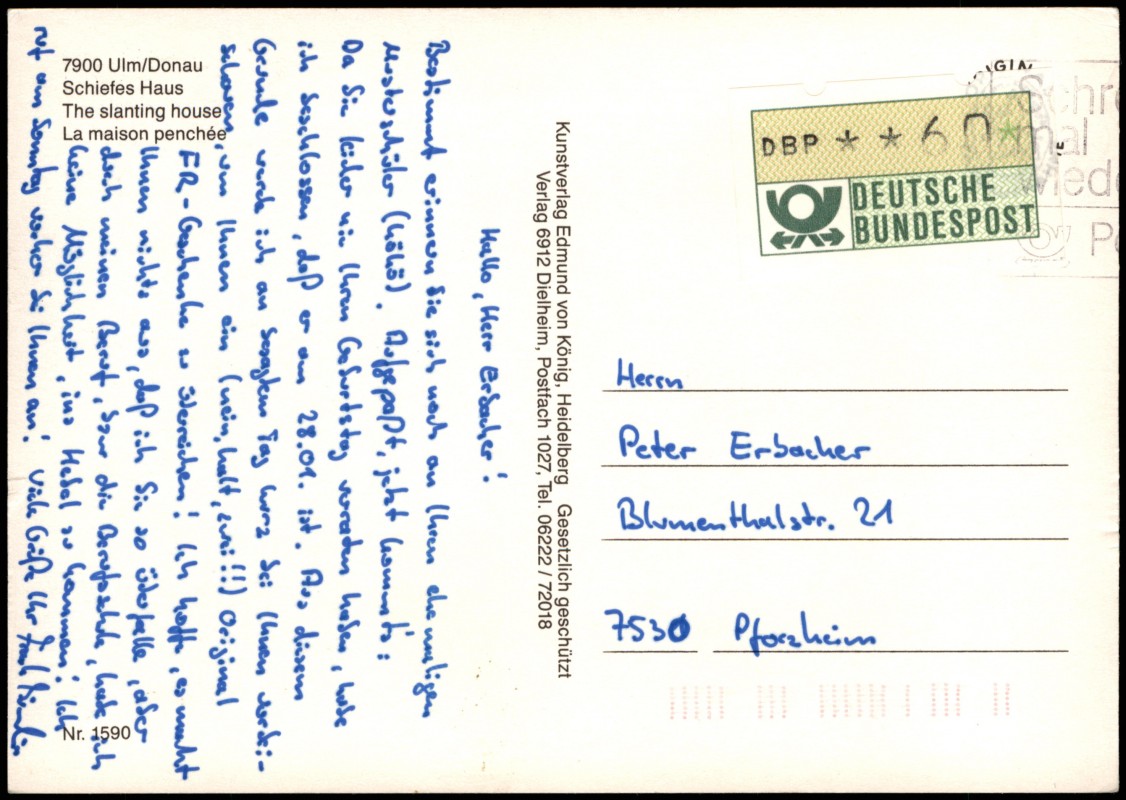 7900 Ulm/Donau
Schiefes Haus
The slanting house
La maison penchée
Hallo, Herr Erbacher!
Bestimmt erinnern Sie sich noch an Ihren ehemaligen
Musterschüler (höhö). Aufgepaßt, jetzt kommt's:
Da Sie leider nie Ihren Geburtstag verraten haben, habe
ich beschlossen, daß er am 28.01. ist. Aus diesem
Grunde werde ich an besagtem Tag kurz bei Ihnen vorbei-
schauen, um Ihnen ein (nein, halt, zwei!!) Original
FR-Geschenke zu überreichen! Ich hoffe, es macht
Ihnen nichts aus, daß ich Sie so überfalle, aber
durch meinen Beruf, bzw die Berufsschule, habe ich
keine Möglichkeit, ins Hebel zu kommen! Ich
ruf am Sonntag vorher bei Ihnen an! Viele Grüße Ihr
Nr. 1590
Kunstverlag Edmund von König, Heidelberg Gesetzlich geschützt
Verlag 6912 Dielheim, Postfach 1027, Tel. 06222 / 72018
DBP * * 60 *
DEUTSCHE
BUNDESPOST
Schre
mal
wiede
Po
Herrn
Peter Erbacher
Blumenthalstr. 21
7530 Pforzheim